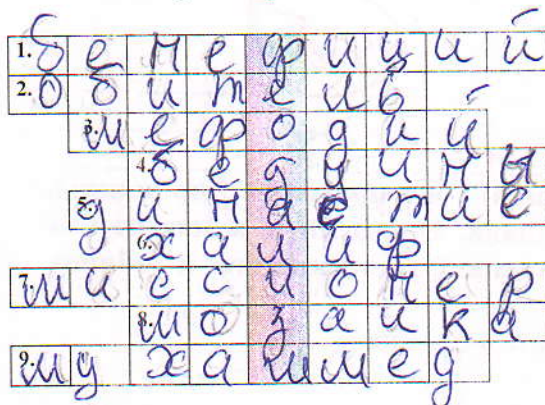 1. бенефиций
2. обитель
3. мефодий
4. бедуины
5. династие
6. халиф
7. миссионер
8. мозаика
9. мухаммед